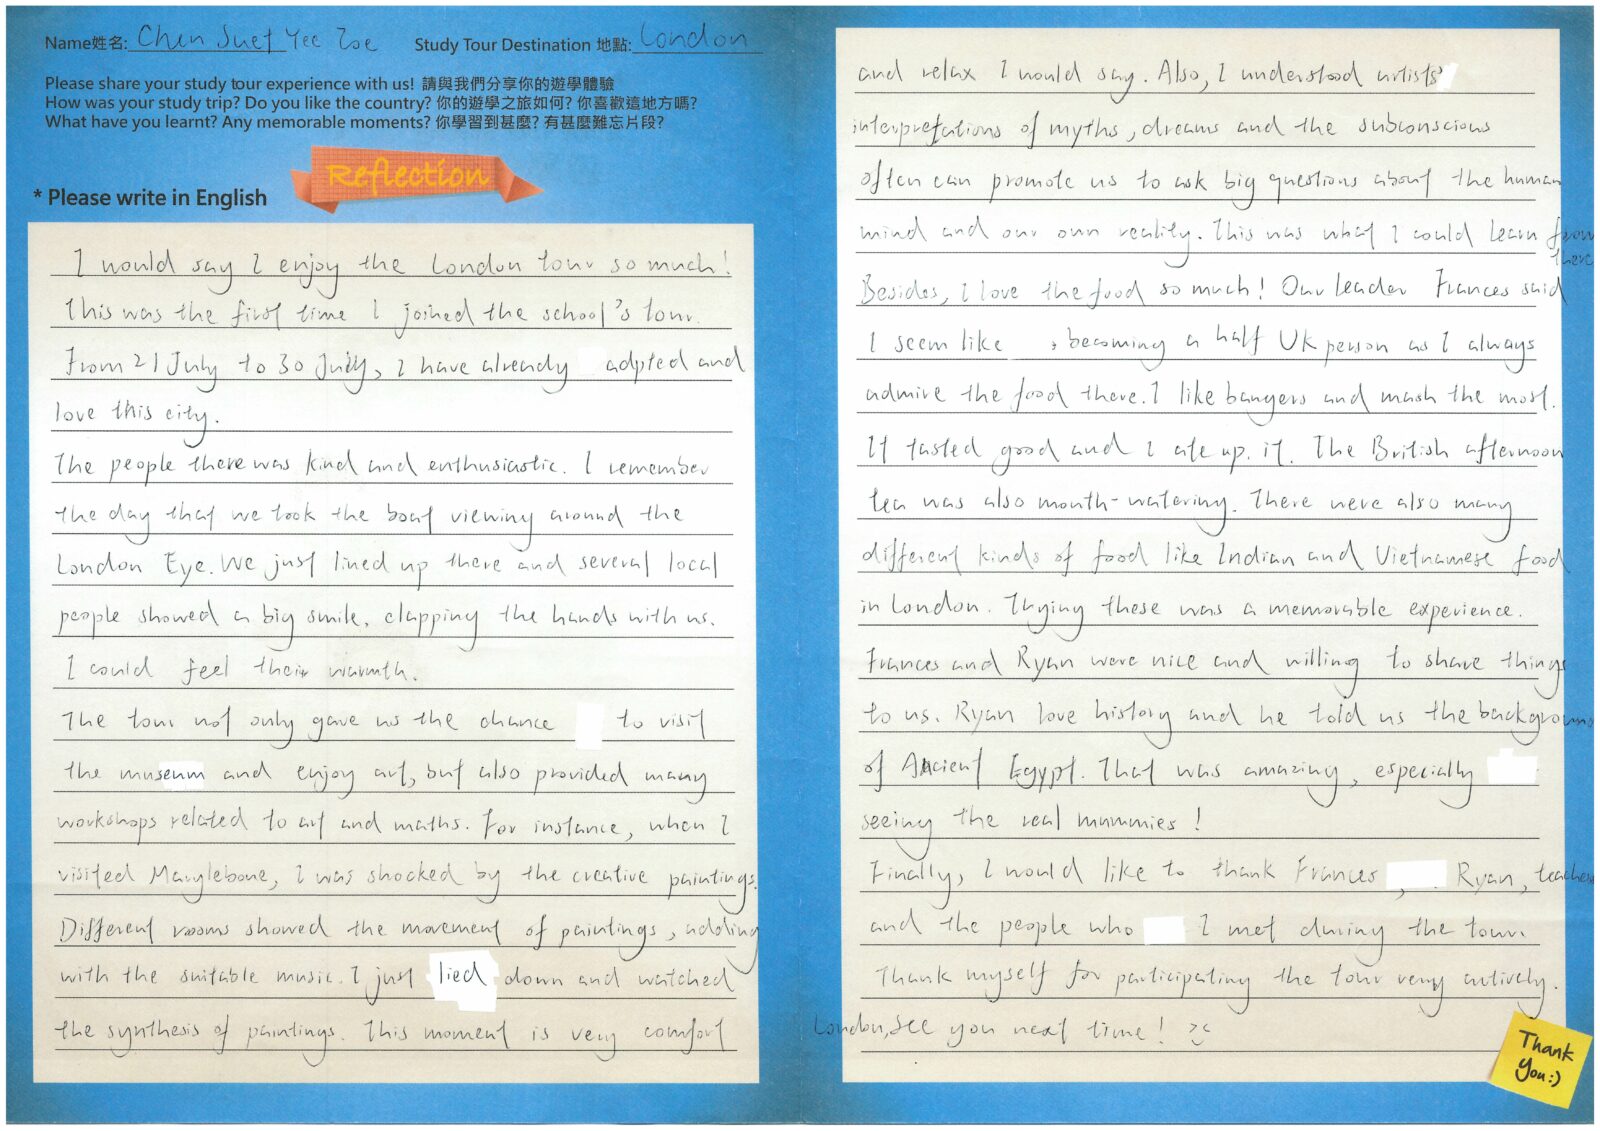 Name姓名: Chen Suet Yee Zoe Study Tour Destination 地點: London
Please share your study tour experience with us! 請與我們分享你的遊學體驗
How was your study trip? Do you like the country? 你的遊學之旅如何? 你喜歡這地方嗎?
What have you learnt? Any memorable moments? 你學習到甚麼? 有甚麼難忘片段?
Reflection
* Please write in English
I would say I enjoy the London tour so much!
This was the first time I joined the school's tour.
From 21 July to 30 July, I have already adpted and
love this city.
The people there was kind and enthusiastic. I remember
the day that we took the boat viewing around the
London Eye. We just lined up there and several local
people showed a big smile, clapping the hands with us.
I could feel their warmth.
The tour not only gave us the chance to visit
the museum and enjoy art, but also provided many
workshops related to art and maths. For instance, when I
visited Marylebone, I was shocked by the creative paintings.
Different rooms showed the movement of paintings, adding
with the suitable music. I just lied down and watched
the synthesis of paintings. This moment is very comfort
and relax I would say. Also, I understood artists'
interpretations of myths, dreams and the subconscious
often can promote us to ask big questions about the human
mind and our own reality. This was what I could learn from
there
Besides, I love the food so much! Our leader Frances said
I seem like , becoming a half UK person as I always
admire the food there. I like bangers and mash the most.
It tasted good and I ate up it. The British afternoon
tea was also mouth-watering. There were also many
different kinds of food like Indian and Vietnamese food
in London. Trying these was a memorable experience.
Frances and Ryan were nice and willing to share things
to us. Ryan love history and he told us the background
of Ancient Egypt. That was amazing, especially
seeing the real mummies!
Finally, I would like to thank Frances , Ryan, teachers
and the people who I met during the tour.
Thank myself for participating the tour very actively.
London, see you next time!
Thank
You:)